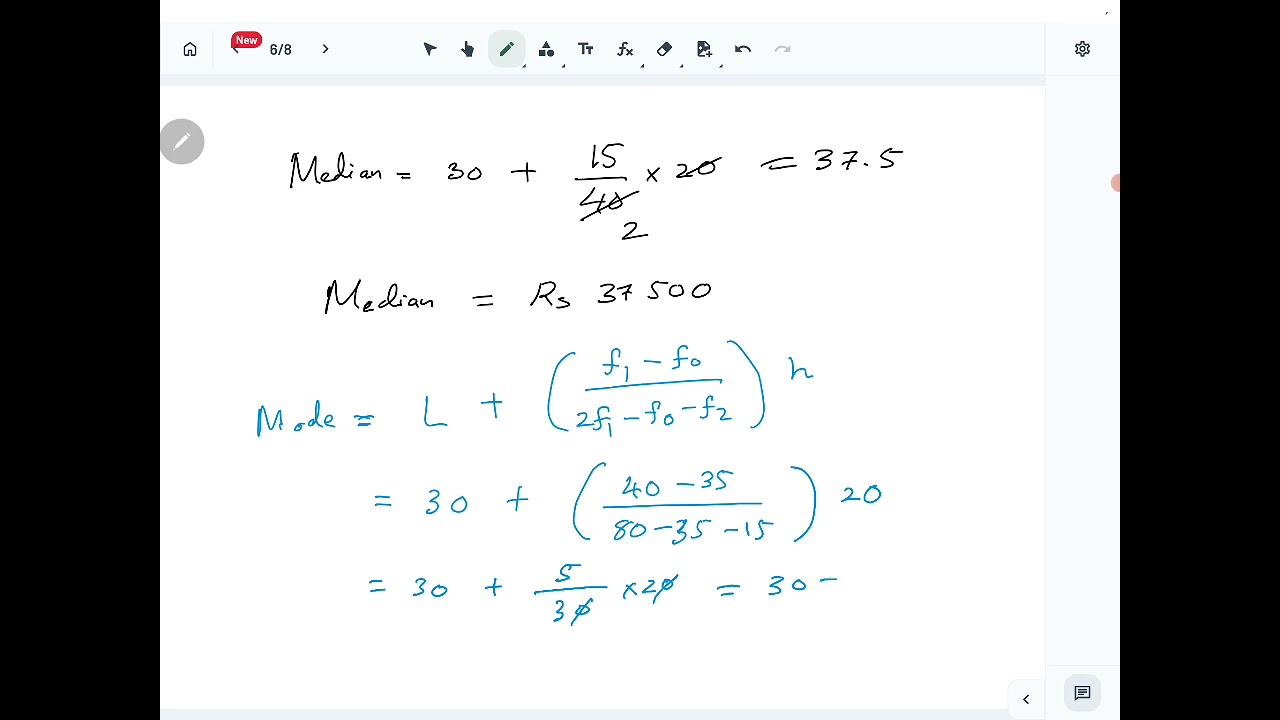 New
6/8
Tт
fx
Median = 30 + 15/40 × 20 = 37.5
2
Median = Rs 37500
Mode = L + (f₁ - f₀ / 2f₁ - f₀ - f₂) h
= 30 + (40 - 35 / 80 - 35 - 15) 20
= 30 + 5/30 × 20 = 30 -